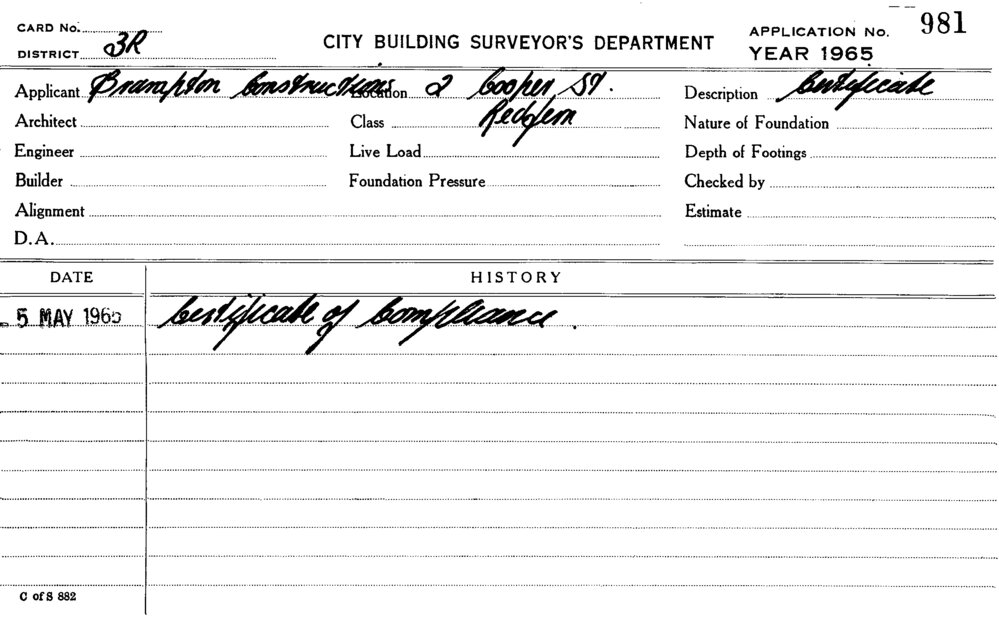 CARD No.
DISTRICT 3R
CITY BUILDING SURVEYOR'S DEPARTMENT
APPLICATION No. 981
YEAR 1965
Applicant Brampton Constructions Location 2 Cooper St. Description Certificate
Architect Class Redfern Nature of Foundation
Engineer Live Load Depth of Footings
Builder Foundation Pressure Checked by
Alignment Estimate
D.A.
DATE HISTORY
5 MAY 1965 Certificate of Compliance.
C of S 882